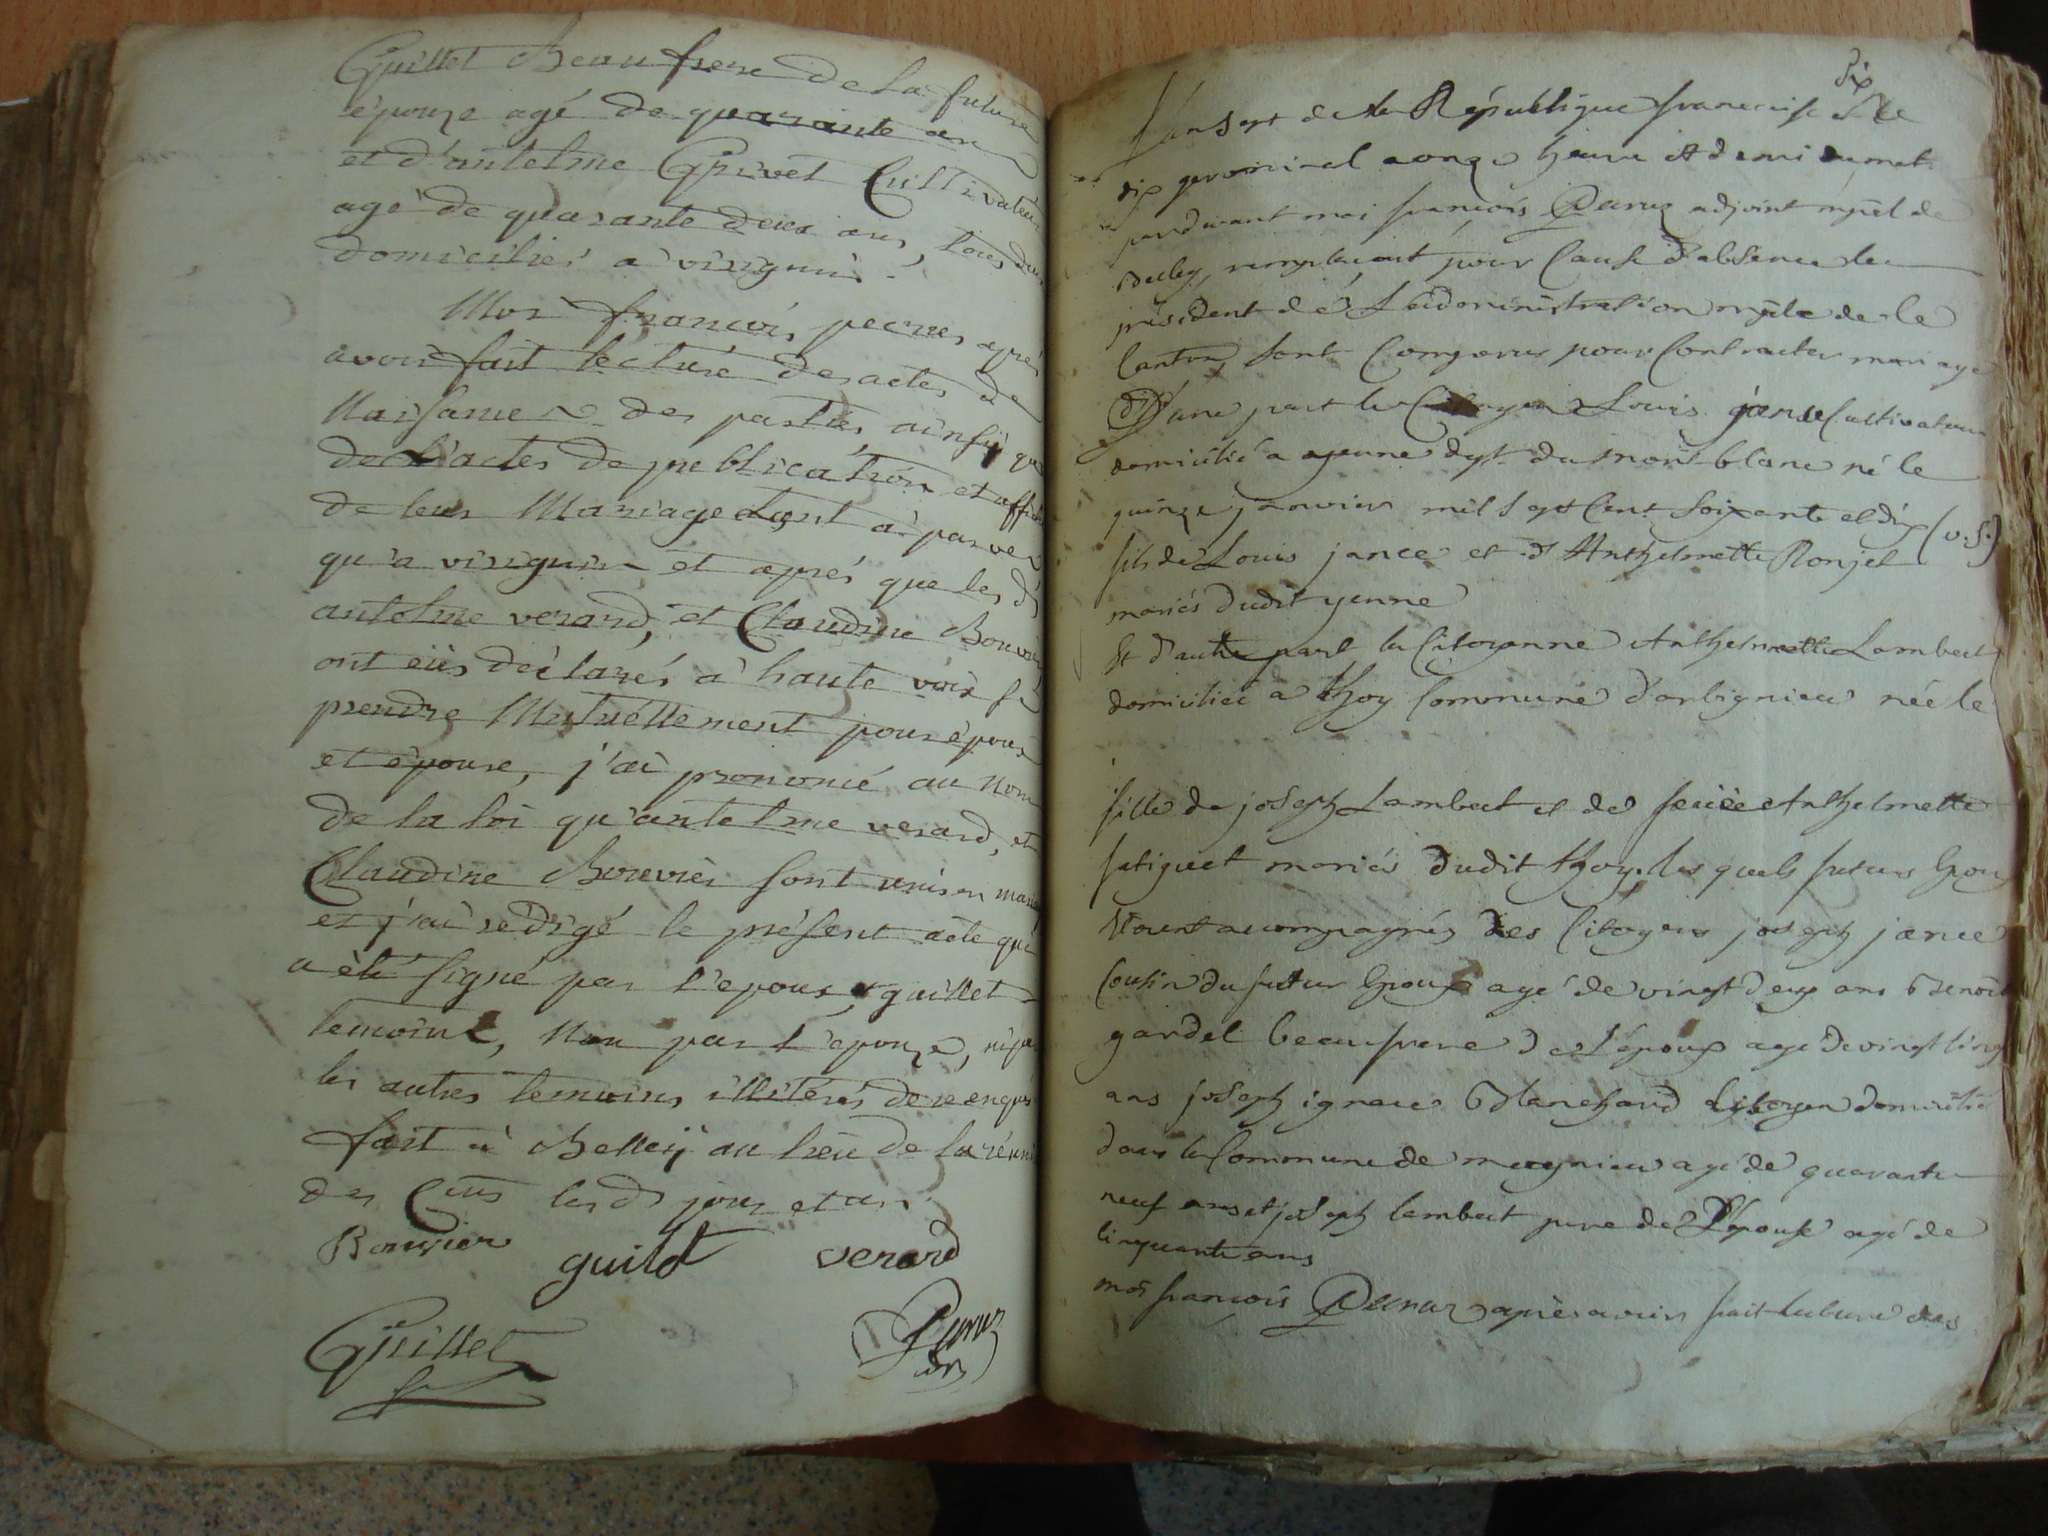 Guillet Beau frere de la future
épouze agé de quarante ans
et d'antelme Grivet Cultivateur
agé de quarante deux ans, tous deux
domiciliés a virignin.
Moi françois peruz aprés
avoir fait lecture des actes de
Naissance des parties, ainsy que
de l'actes de publication et affiche
de leur Mariage tant a parves
qu'a virignin et aprés que les d
antelme verard, et Claudine Bouvier
ont eüs déclarés à haute voix se
prendre Mutuéllement pour époux
et épouse, j'ai prononcé au Nom
de la loi qu'antelme verard, et
Claudine Bouvier sont unis en mariage
et j'ai rédigé le présent acte qui
a été signé par l'epoux, guillet
temoins, Non par l'epouze, ni par
les autres temoins illitérés de ce enquis
fait à Belleÿ au lieu de la réunion
des Cens lesd jour et an.
Bouvier guilot verard
Guillet Peruz
adj
Dix
L'an sept de la République francaise et le
dix germinal a onze heure et demi du mat
pardevant moi françois Peruz adjoint mpal de
Belley, remplacant pour Cause d'absence le
président de L'administration mpale de ce
Canton, sont Comparus pour Contracter mariage
D'une part le Citoyen Louis jance Cultivateur
domicilié a yenne dpt du mont blanc né le
quinze janvier mil sept Cent soixante et dix (v.s.)
fils de Louis jance et d'Anthelmette Ronjet
mariés dudit yenne
Et d'autre part la Citoyenne Anthelmette Lambert
domiciliée a thoy Commune d'arbignieu née le
fille de joseph Lambert et de feüe Anthelmette
fatiguet mariés dudit thoy. les quels futurs Epoux
étoient accompagnés des Citoyens joseph jance
Cousin du futur Epoux agé de vingt deux ans Benoit
gardel beaufrere de L'époux agé de vingt Cinq
ans joseph ignace Blanchard Citoyen domicilié
dans la Commune de magnieu agé de quarante
neuf ans et joseph lambert pere de L'épouse agé de
Cinquante ans
moi françois Peruz aprés avoir fait lecture des